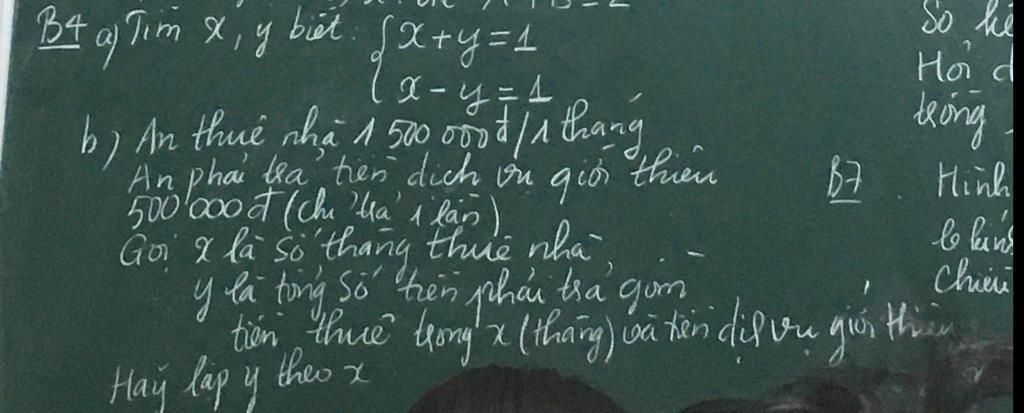 B4 a) Tìm x, y biết: { x + y = 1
x - y = 1
b) An thuê nhà 1 500 000đ/1 tháng
An phải trả tiền dịch vụ giới thiệu
500 000đ (chỉ trả 1 lần)
Gọi x là số tháng thuê nhà,
y là tổng số tiền phải trả gồm
tiền thuê trong x (tháng) và tiền dịch vụ giới thiệu
Hãy lập y theo x
Hỏi
trong
B7 Hình
Chiều